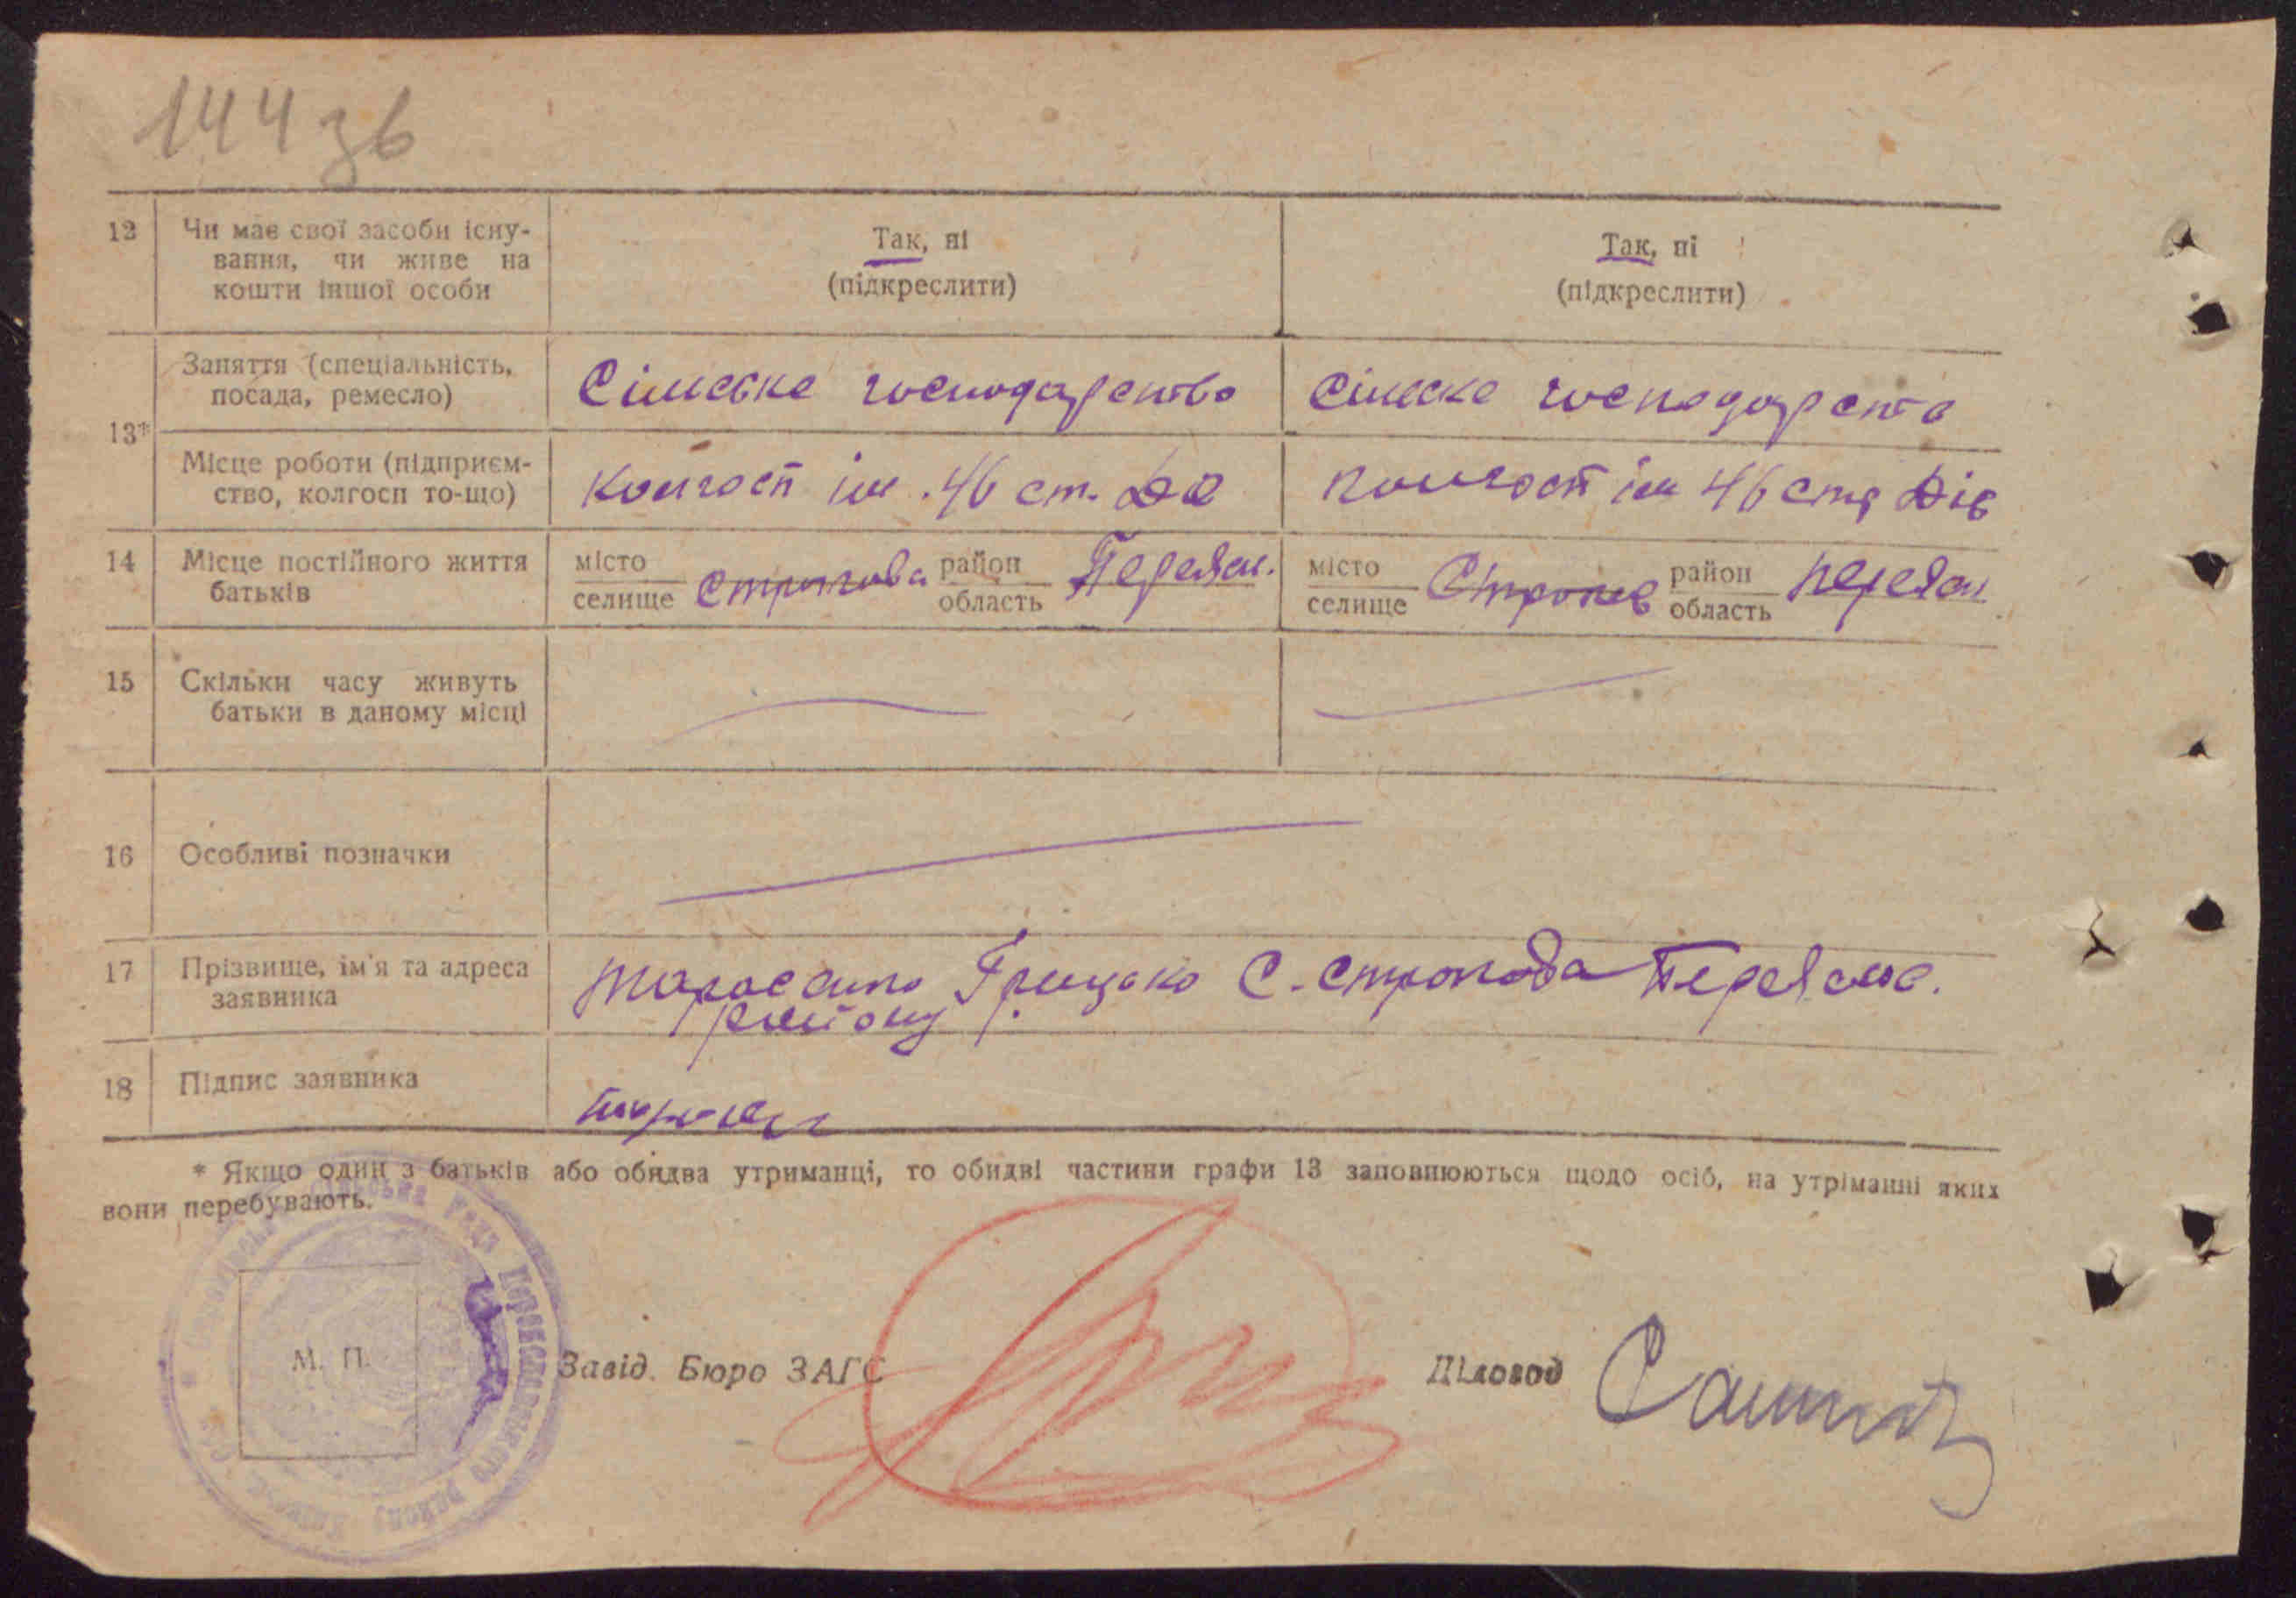 144 зв
12 Чи має свої засоби існу-
вання, чи живе на
кошти іншої особи
Так, ні
(підкреслити)
Так, ні
(підкреслити)
13*
Заняття (спеціальність,
посада, ремесло)
Сільське господарство
Сільске господарств
Місце роботи (підприєм-
ство, колгосп то-що)
Колгосп ім. 46 ст. ДД
Колгосп ім 46 стр Див
14 Місце постійного життя
батьків
місто
селище
Строкова
район
область
Переясл.
місто
селище
Строков
район
область
Переясл
15 Скільки часу живуть
батьки в даному місці
16 Особливі позначки
17 Прізвище, ім'я та адреса
заявника
Тарасенко Грицько С. Строкова Переяслав.
району
18 Підпис заявника
* Якщо один з батьків або обидва утриманці, то обидві частини графи 13 заповнюються щодо осіб, на утріманні яких
вони перебувають.
Рада Переяславського району
М. П.
Завід. Бюро ЗАГС
Діловод